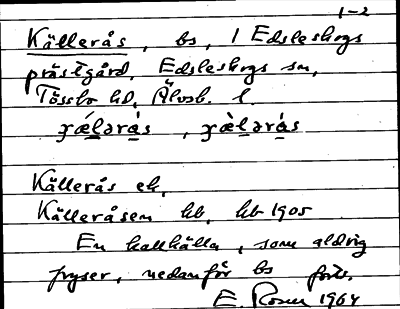 1-2
Källerås, bs, 1 Edsleskogs
prästgård, Edsleskogs sn,
Tössbo hd, Älvsb. l.
Källerås ek,
Källeråsen hb, hb 1905
En kallkälla, som aldrig
fryser, nedanför bs forts.
E. Rosen 1964